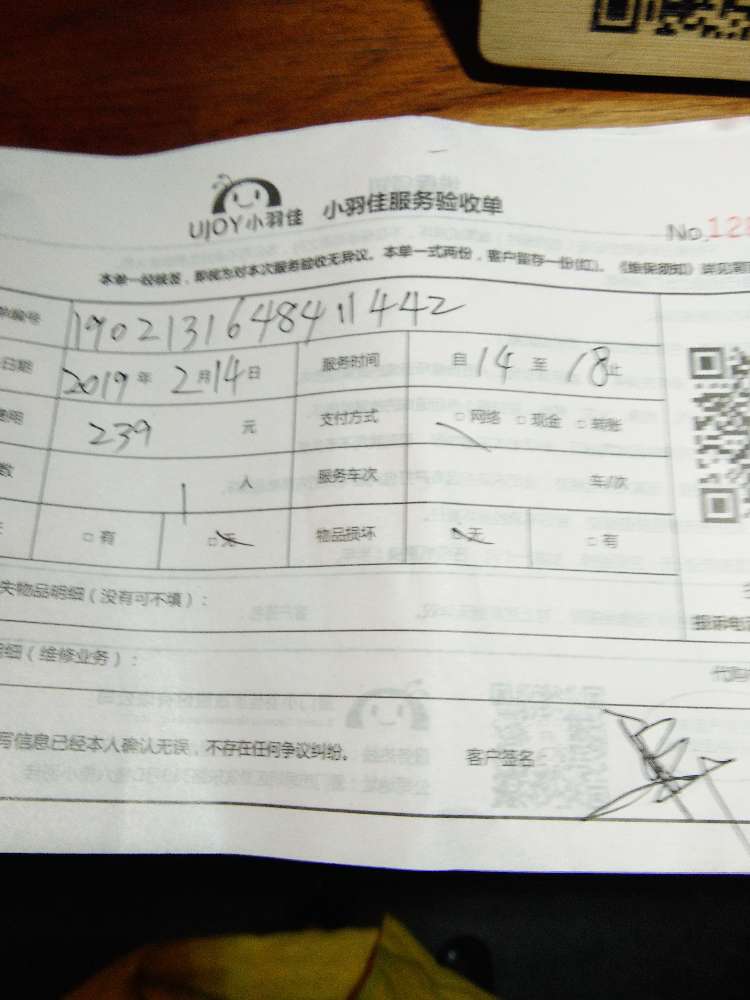 UJOY小羽佳 小羽佳服务验收单
No.12
本单一经核签，即视为对本次服务验收无异议。本单一式两份，客户留存一份(红)。《维保须知》详见
编号 190213164841442
日期 2019年2月14日 服务时间 自14至18止
费用 239元 支付方式 □网络 □现金 □转账
数 1人 服务车次 车/次
□有 □无 物品损坏 □无 □有
失物品明细（没有可不填）：
明细（维修业务）：
写信息已经本人确认无误，不存在任何争议纠纷。 客户签名：